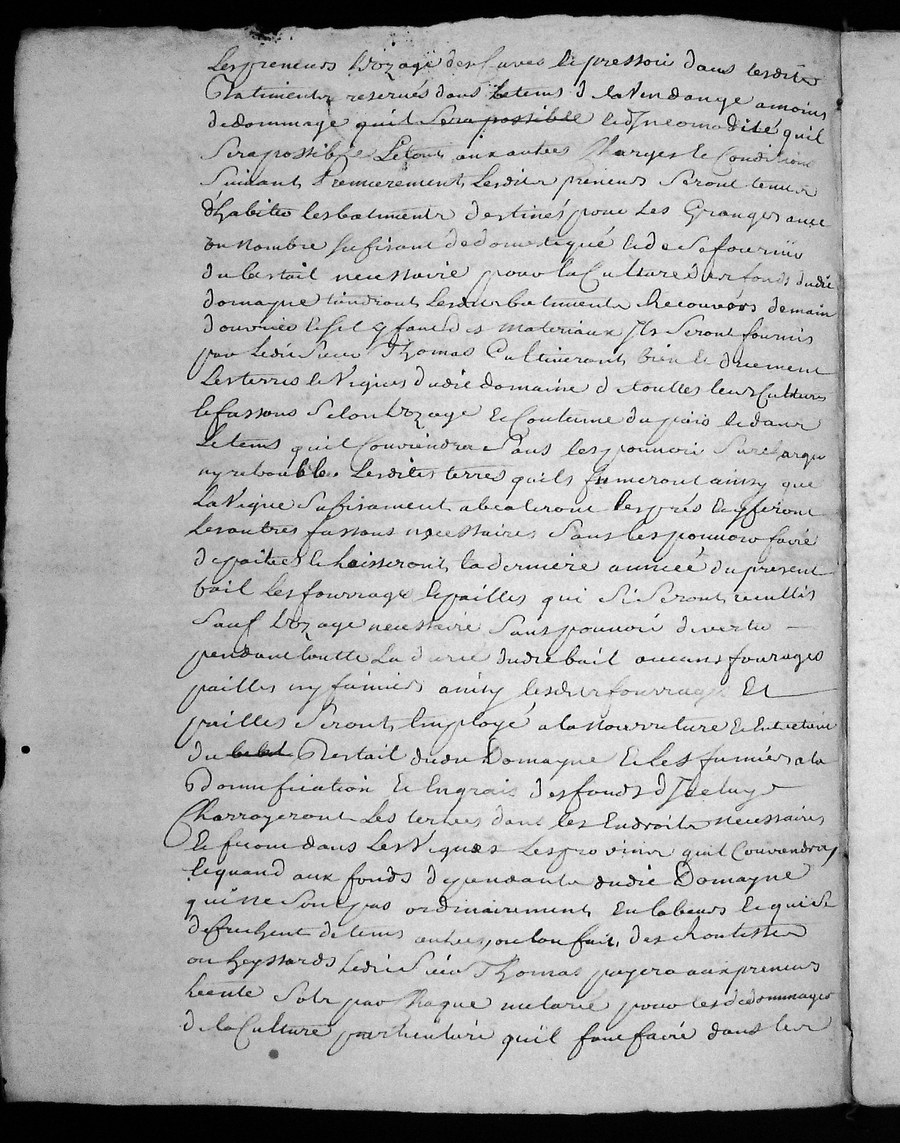 Les preneurs L'Vzage des Cuves le pressoir dans lesdits
Batiments reservés dans le tems de la Vendange a moins
de dommage quil sera possible le d'Incomodité quil
Sera possible Le tout aux autres Charges le Conditions
Suivant Premierement Lesdits preneurs Seront tenus
d'habiter les batiments destinés pour Les Granges avec
un nombre sufisant de domestique le de se fournir
du bestail necessaire pour la Culture des fonds dudit
domayne tiendront Lesdits batiments Recouvers de main
d'ouvrier le sil y faut des materiaux Ils Seront fournis
par Ledit Sieur Thomas Cultiveront bien le duement
Les terres le Vignes dudit domaine de touttes leurs Cultures
le fassons Selon L'vzage le Coutume du pais le dans
Le tems quil Conviendra Sans les pouvoir Surcharger
ny retroubler Lesdites terres quils fumeront ainsy que
La Vigne Sufisament abealeront les prés le y feront
Les autres fassons necessaires Sans les pouvoir faire
depaitre le Laisseront la derniere année du present
bail les fourrage le pailles qui Si Seront recullis
Sauf L'vzage necessaire Sans pouvoir divertir
pendant toutte La durée dudit bail aucuns fourages
pailles ny fumiers ainsy lesdits fourrages Et
pailles Seront Employé a la nourriture Et Entretient
du Bestail dudit Domayne Et les fumiers a la
Bonnification Et Engrais des fonds d'Iceluy
Charroyeront Les terres dans les Endroits necessaires
Et feront dans Les Vignes Les provins quil Conviendra
le quand aux fonds dependants dudit Domayne
qui ne Sont pas ordinairement En labeurs le qui se
defrichent de tems autres ou l'on fait des
ou Ledit Sieur Thomas payera aux preneurs
trente Sols par Chaque meterée pour les dedommager
de la Culture particuliere quil faut faire dans les